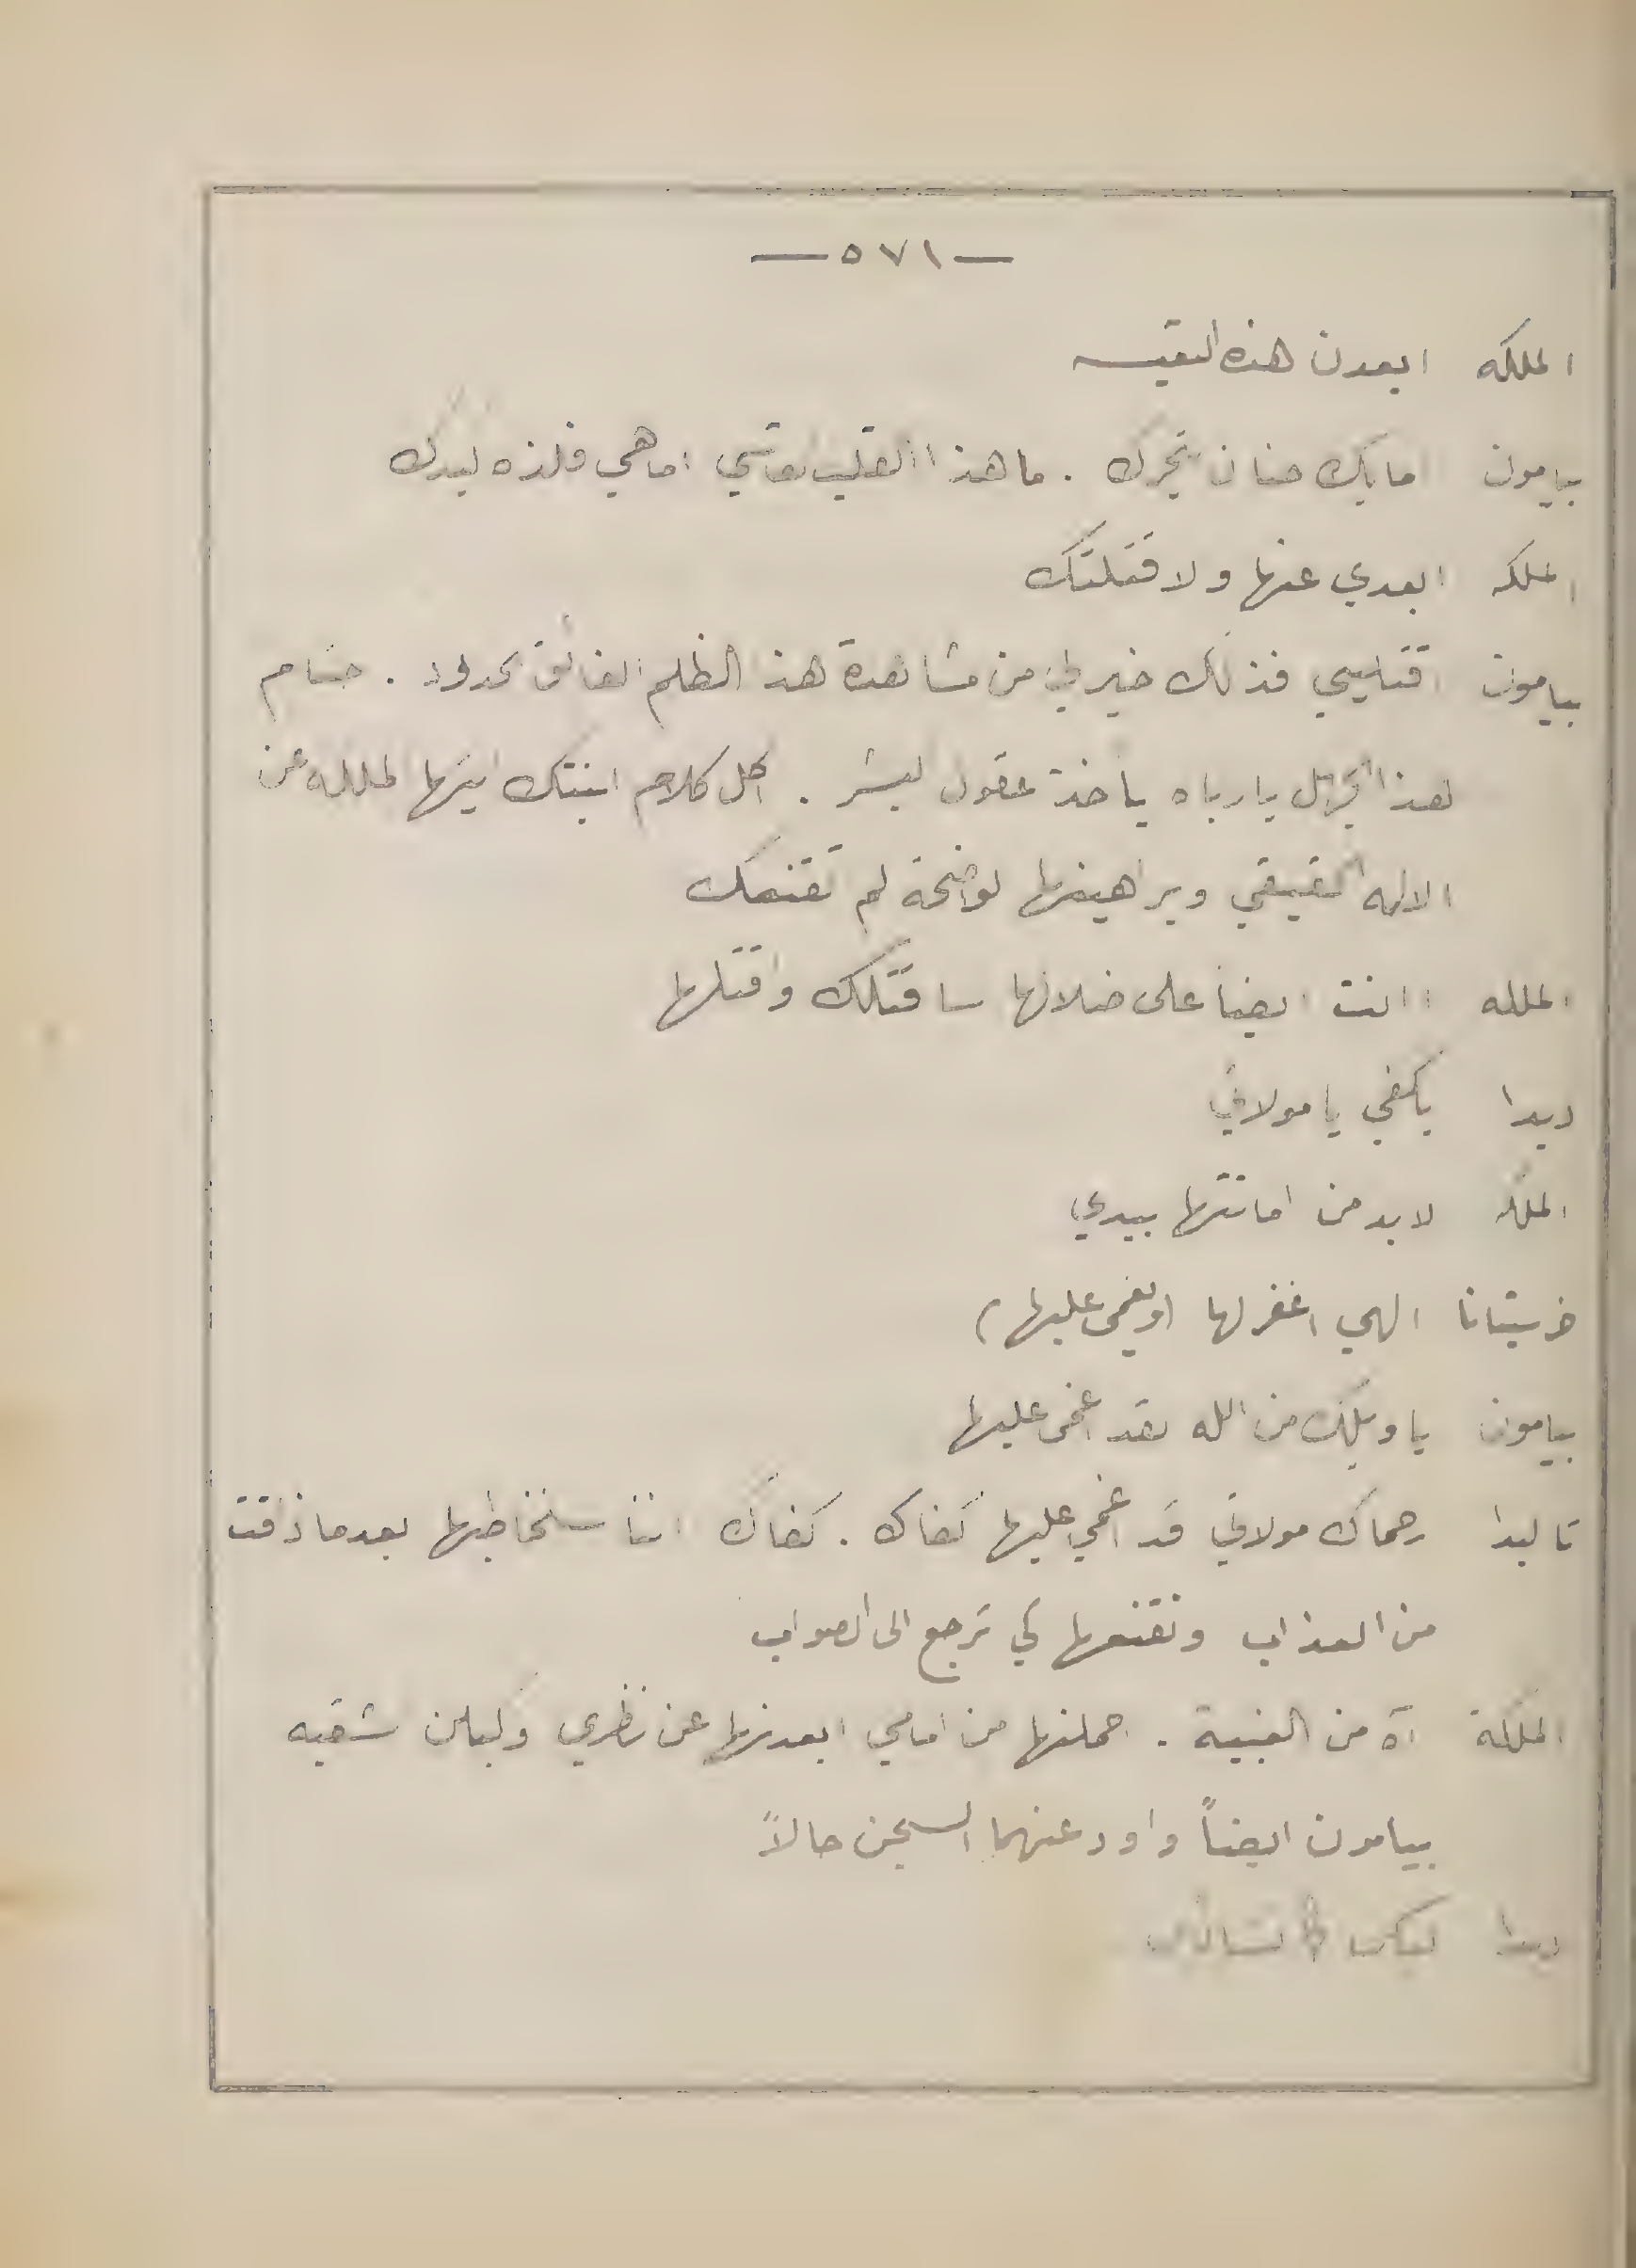 — ٥٧١ —
الملكه ابعدن هذه التعيسه
بيامون اما بك حنان يتحرك . ما هذا القلب القاسي اما هي فلذه كبدك
الملكه ابعدي عنها ولا قتلتك
بيامون اقتليني فذلك خير لي من مشاهدة هذا الظلم الفائق الحدود . حتام
هذا الجهل يا رباه يأخذ عقول البشر . اكل كلام ابنتك ايتها الملكه عن
الاله الحقيقي وبراهينها الواضحة لم تقنعك
الملكه اانت ايضاً على ضلالها ساقتلك واقتلها
ديدا يكفي يا مولاتي
الملكه لا بد من اماتتها بيدي
خرستانا الهي اغفر لها (ويغمى عليها)
بيامون يا ويلك من الله لقد اغمى عليها
تاليدا رحماك مولاتي قد اغمي عليها كفاك . كفاك اننا سنخاطبها بعدما ذاقت
من العذاب ونقنعها كي ترجع الى الصواب
الملكة آه من الغبية . احملنها من امامي ابعدنها عن نظري وكبلن شقيه
بيامون ايضاً واودعنهما السجن حالاً
ديدا ليكن